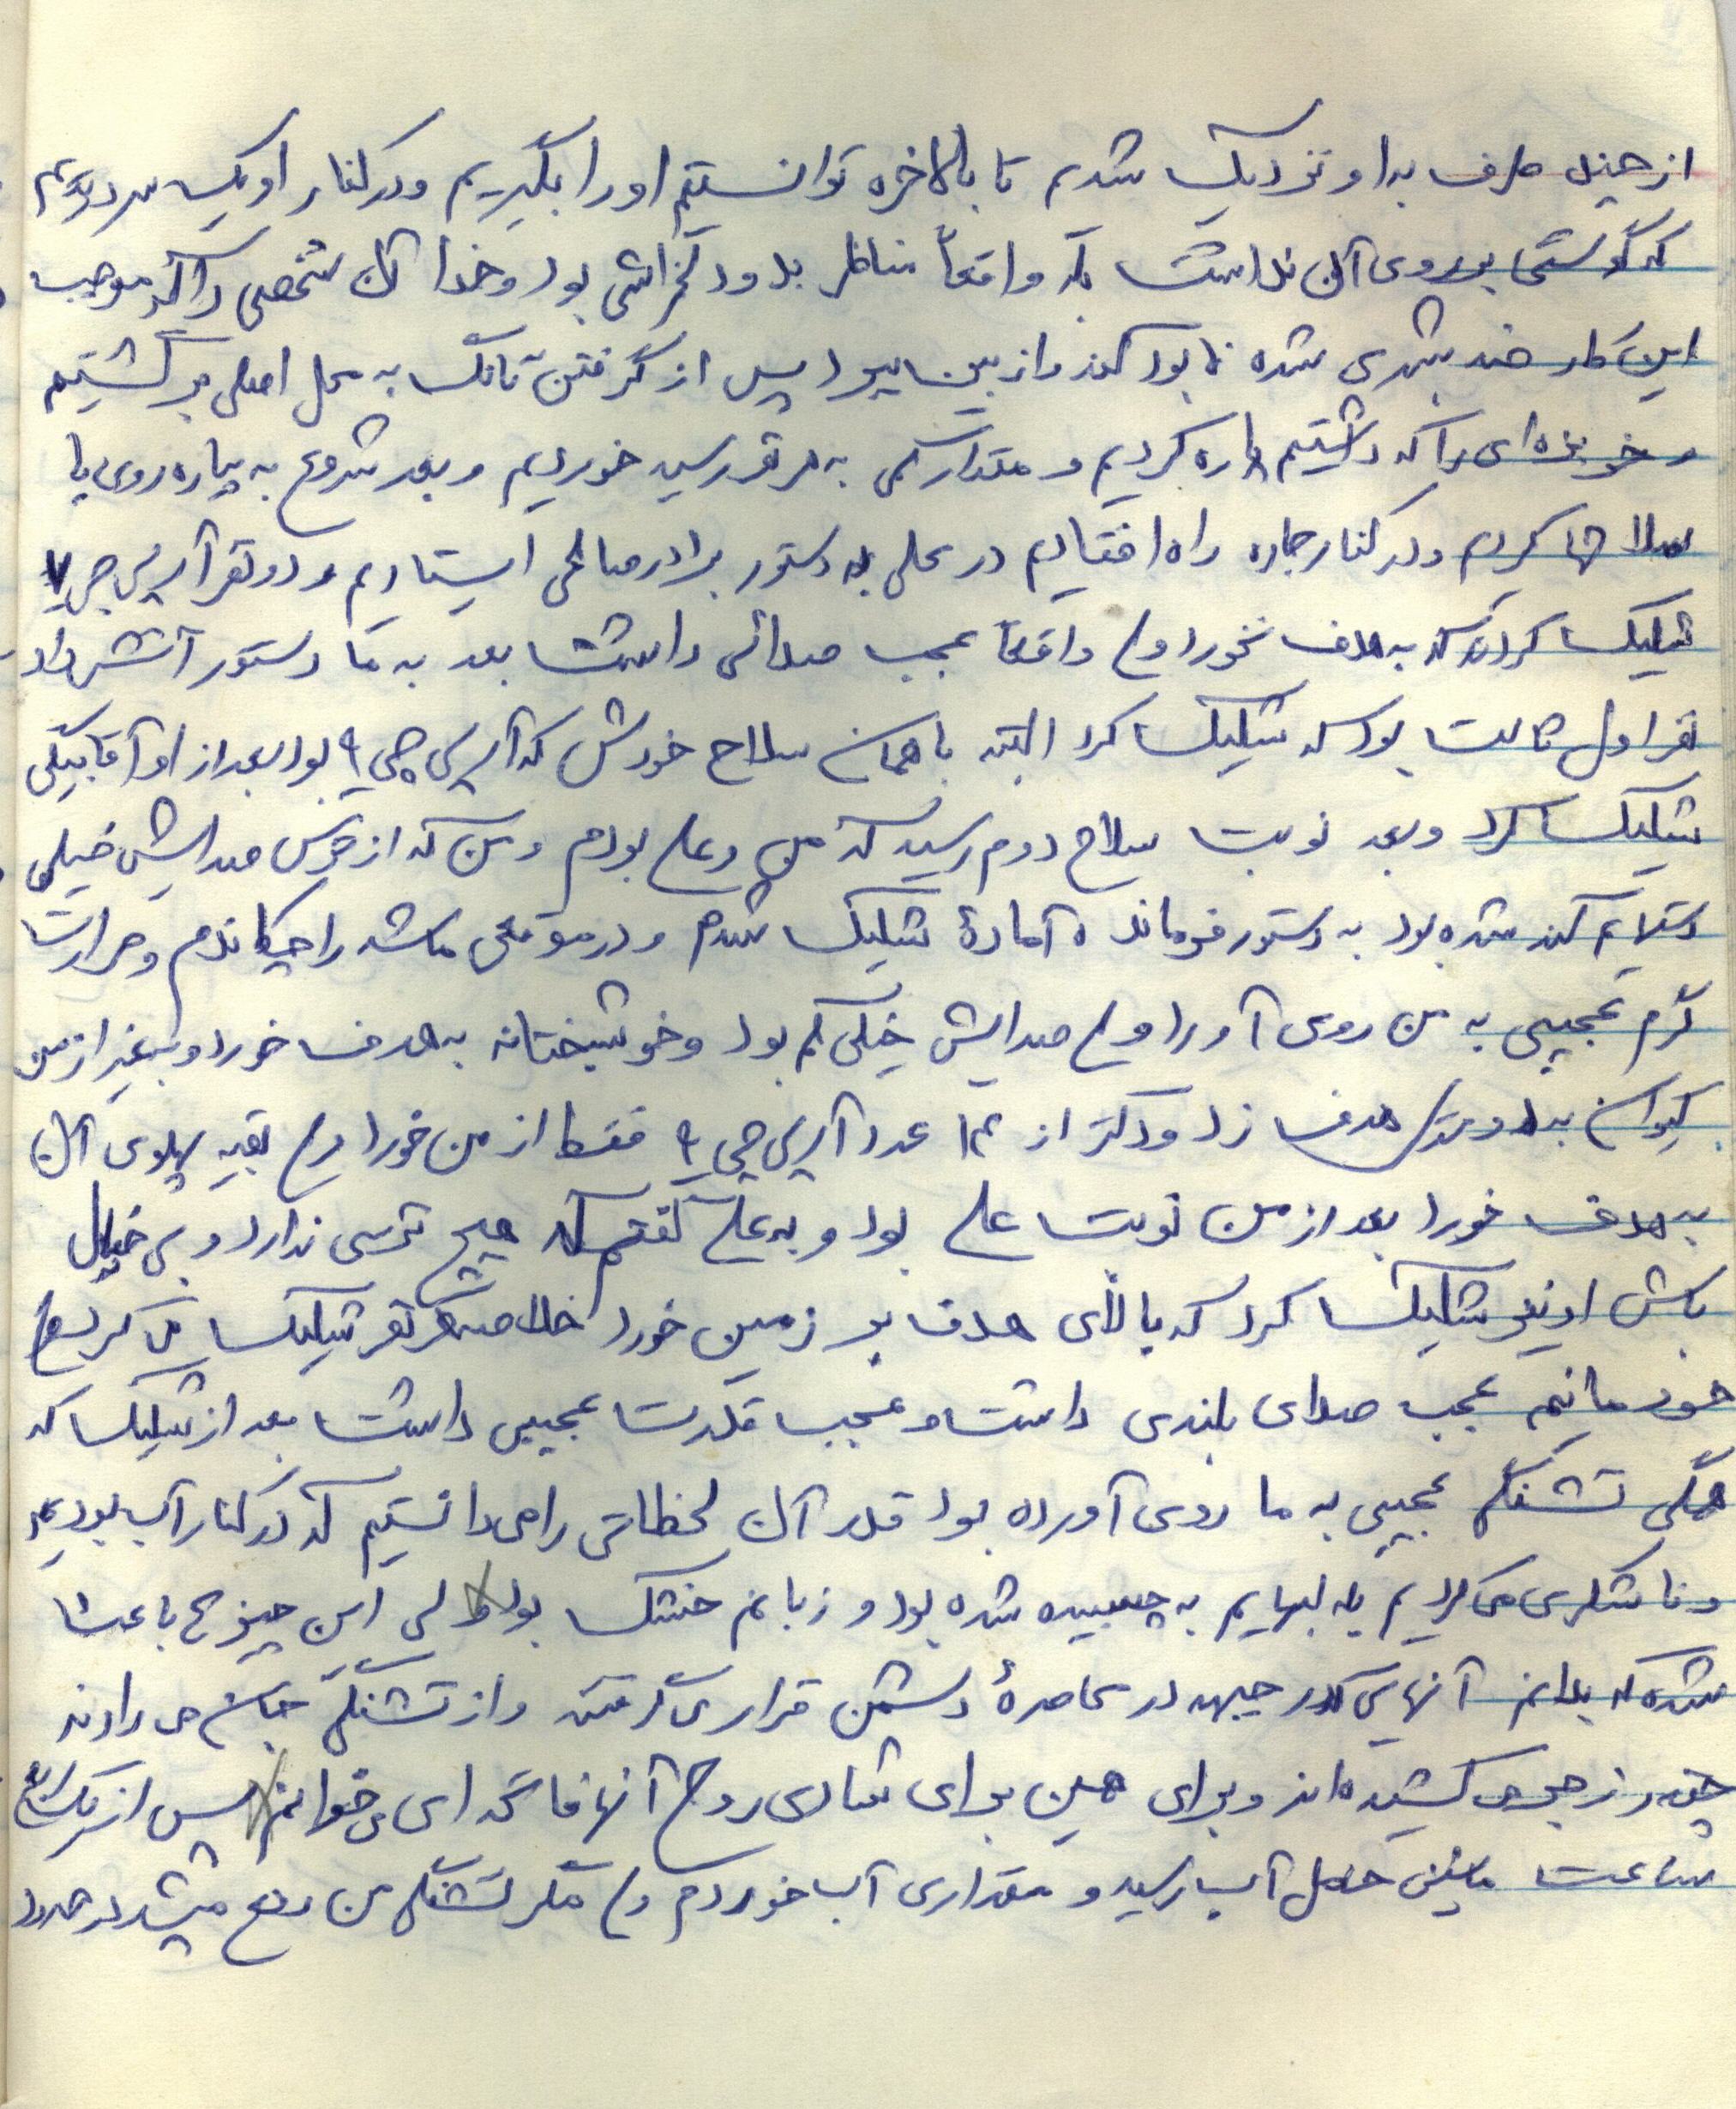 از چند طرف به او نزدیک شدیم تا بالاخره توانستیم او را بگیریم و در کنار او یک سر دیدیم
که گوشتی بر روی آن نداشت که واقعاً مناظر بد و دلخراشی بود و خدا آن شخصی را که موجب
این کار ضد بشری شده نابود کند و از بین ببرد پس از گرفتن تانک به محل اصلی برگشتیم
و خربزه‌ای را که داشتیم پاره کردیم و مقدار کمی به هر نفر رسید خوردیم و بعد شروع به پیاده روی با
سلاح‌ها کردیم و در کنار جاده راه افتادیم در محلی به دستور برادر صالحی ایستادیم و دو نفر آر پی جی ۷
شلیک کردند که به هدف نخورد ولی واقعاً عجب صدائی داشت بعد به ما دستور آتش داد
نفر اول ثابت بود که شلیک کرد البته با همان سلاح خودش که آر پی جی ۹ بود بعد از او آقابیگی
شلیک کرد و بعد نوبت سلاح دوم رسید که من و علی بودم و من که از ترس صدایش خیلی
دستهایم کند شده بود به دستور فرمانده آمادهٔ شلیک شدم و در موقعی ماشه را چکاندم و حرارت
گرم عجیبی به من روی آورد ولی صدایش خیلی کم بود و خوشبختانه به هدف خورد و بغیر از من
کیوان به هدف زد و دکتر از ۱۲ عدد آر پی جی ۹ فقط از من خورد ولی بقیه پهلوی آن
به هدف خورد بعد از من نوبت علی بود و به علی گفتم که هیچ ترسی ندارد و بی خیال
باش او نیز شلیک کرد که بالای هدف بر زمین خورد خلاصه هر نفر شلیک می کرد ولی
خودمانیم عجب صدای بلندی داشت و عجب قدرت عجیبی داشت بعد از شلیک که
همگی تشنگی عجیبی به ما روی آورده بود قدر آن لحظاتی را می دانستیم که در کنار آب بودیم
و ناشکری می کردیم که لبهایم به چسبیده شده بود و زبانم خشک بود ولی این چیزها باعث
شد که بدانم آنهایی که در جبهه در محاصرهٔ دشمن قرار می گرفتند و از تشنگی جان می دادند
چقدر زجر کشیده‌اند و برای همین برای شادی روح آنها فاتحه ای می خوانم پس از یک ربع
ساعت ماشین حامل آب رسید و مقداری آب خوردم ولی مگر تشنگی من رفع میشد در حدود